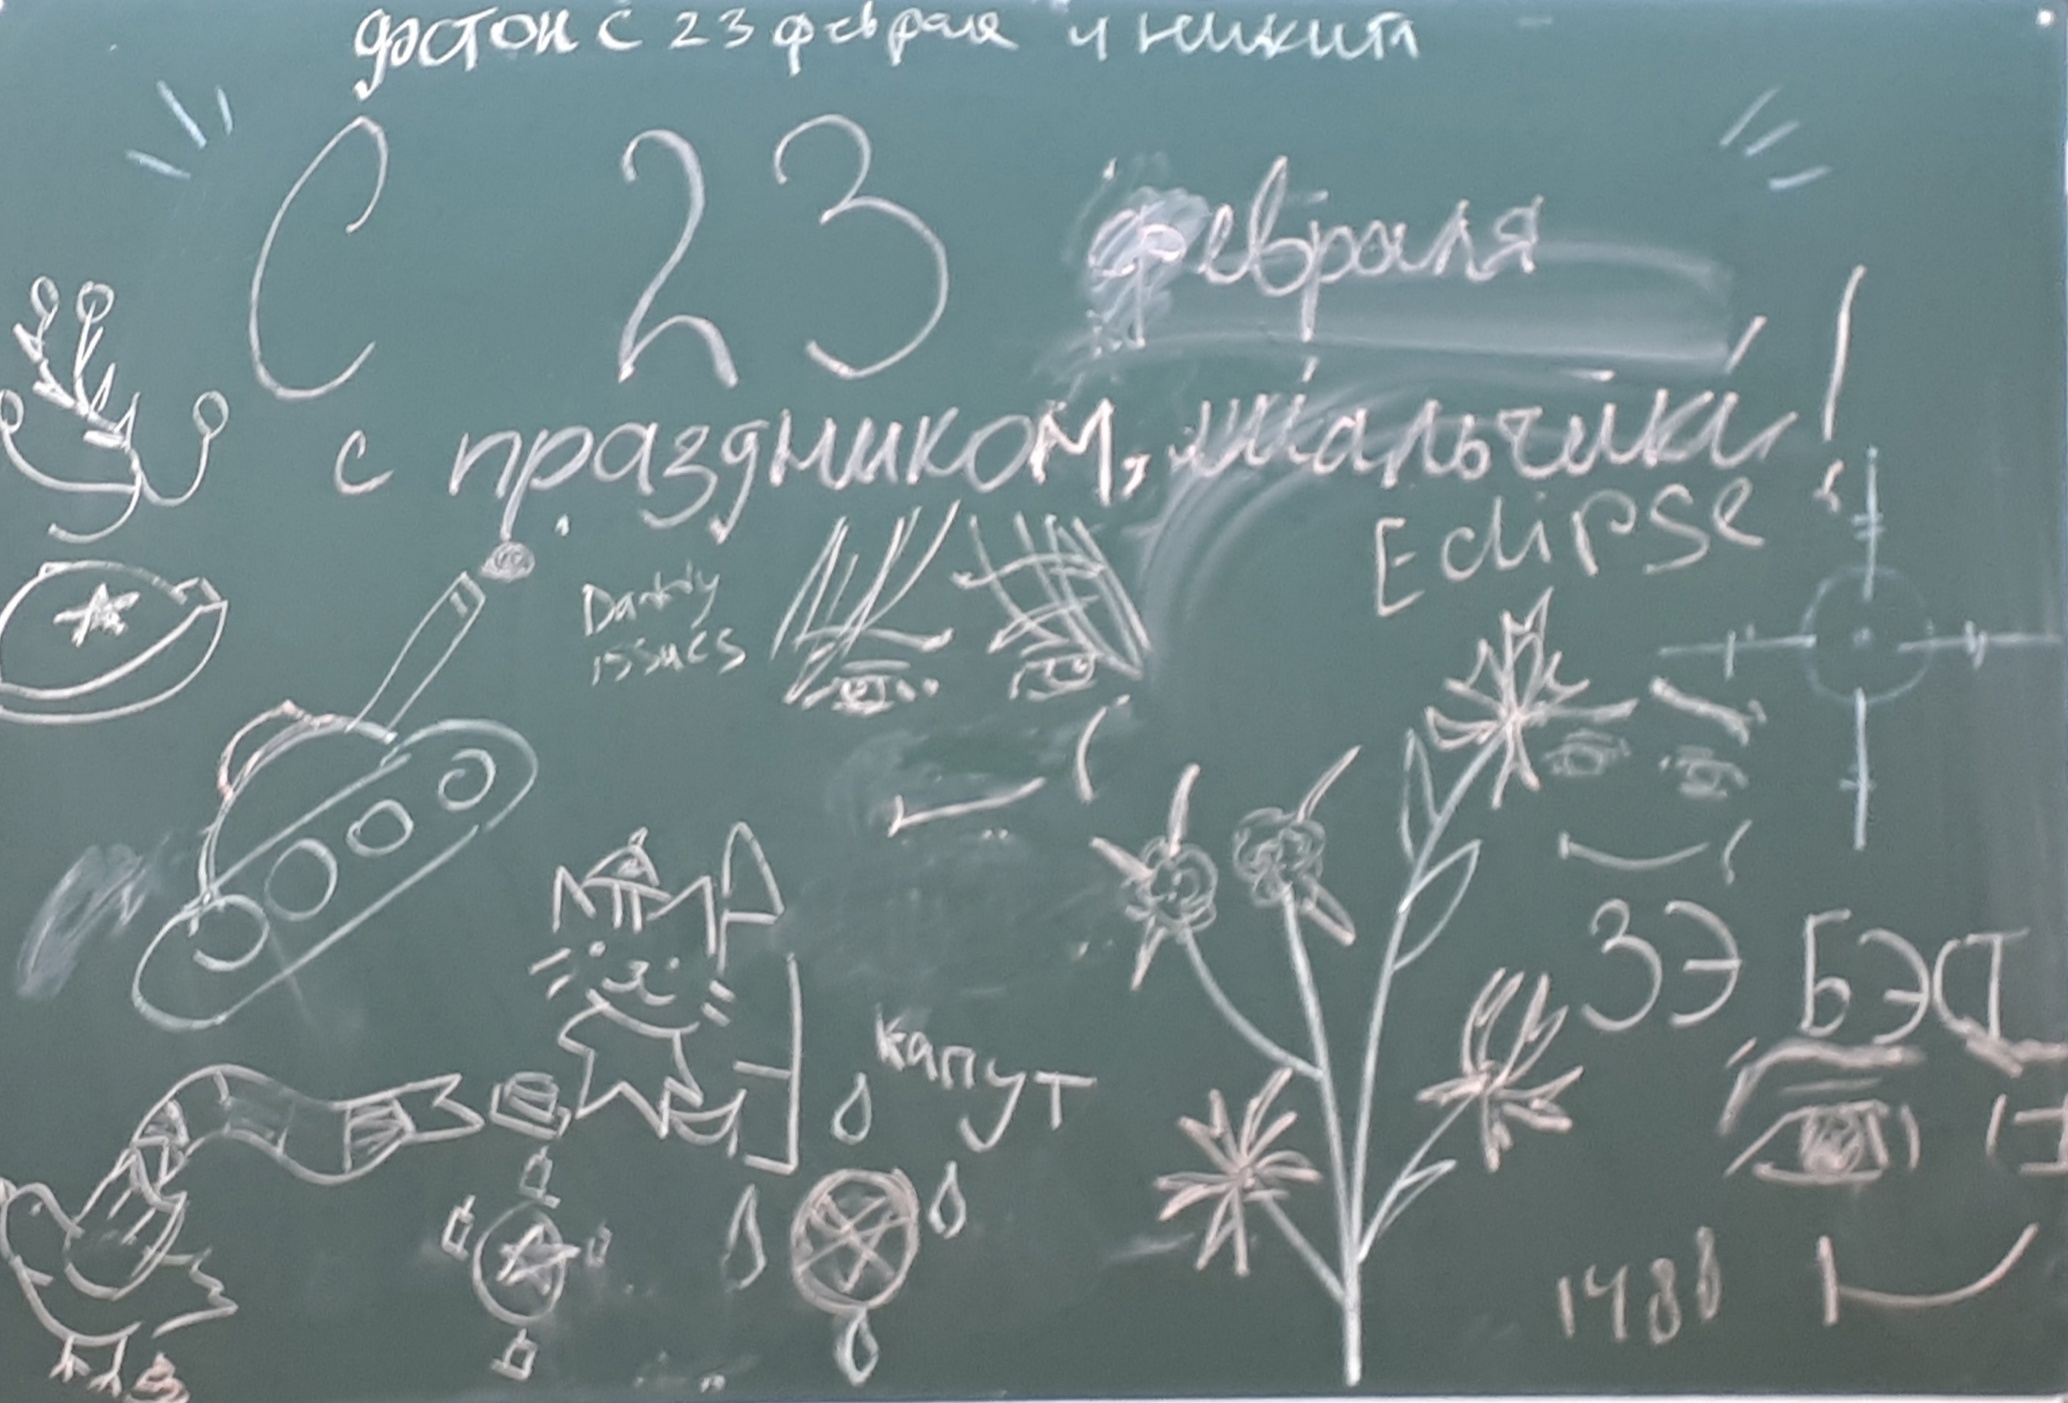 фэстон с 23 февраля и никита
С 23 февраля!
с праздником, мальчики!
Eclipse
Daddy
issues
ЗЭ БЭСТ
капут
1488